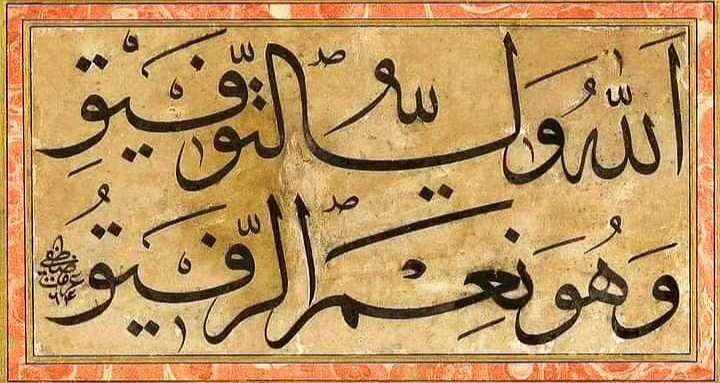 اَللّٰهُ وَلِيُّ التَّوْفِيْقِ
وَهُوَ نِعْمَ الرَّفِيْقُ